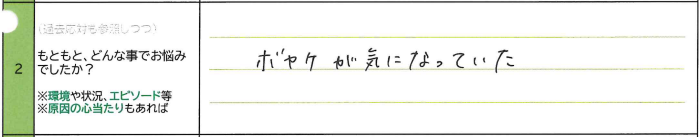 (過去応対も参照しつつ)
2
もともと、どんな事でお悩み
でしたか?
※環境や状況、エピソード等
※原因の心当たりもあれば
ボヤケが気になっていた